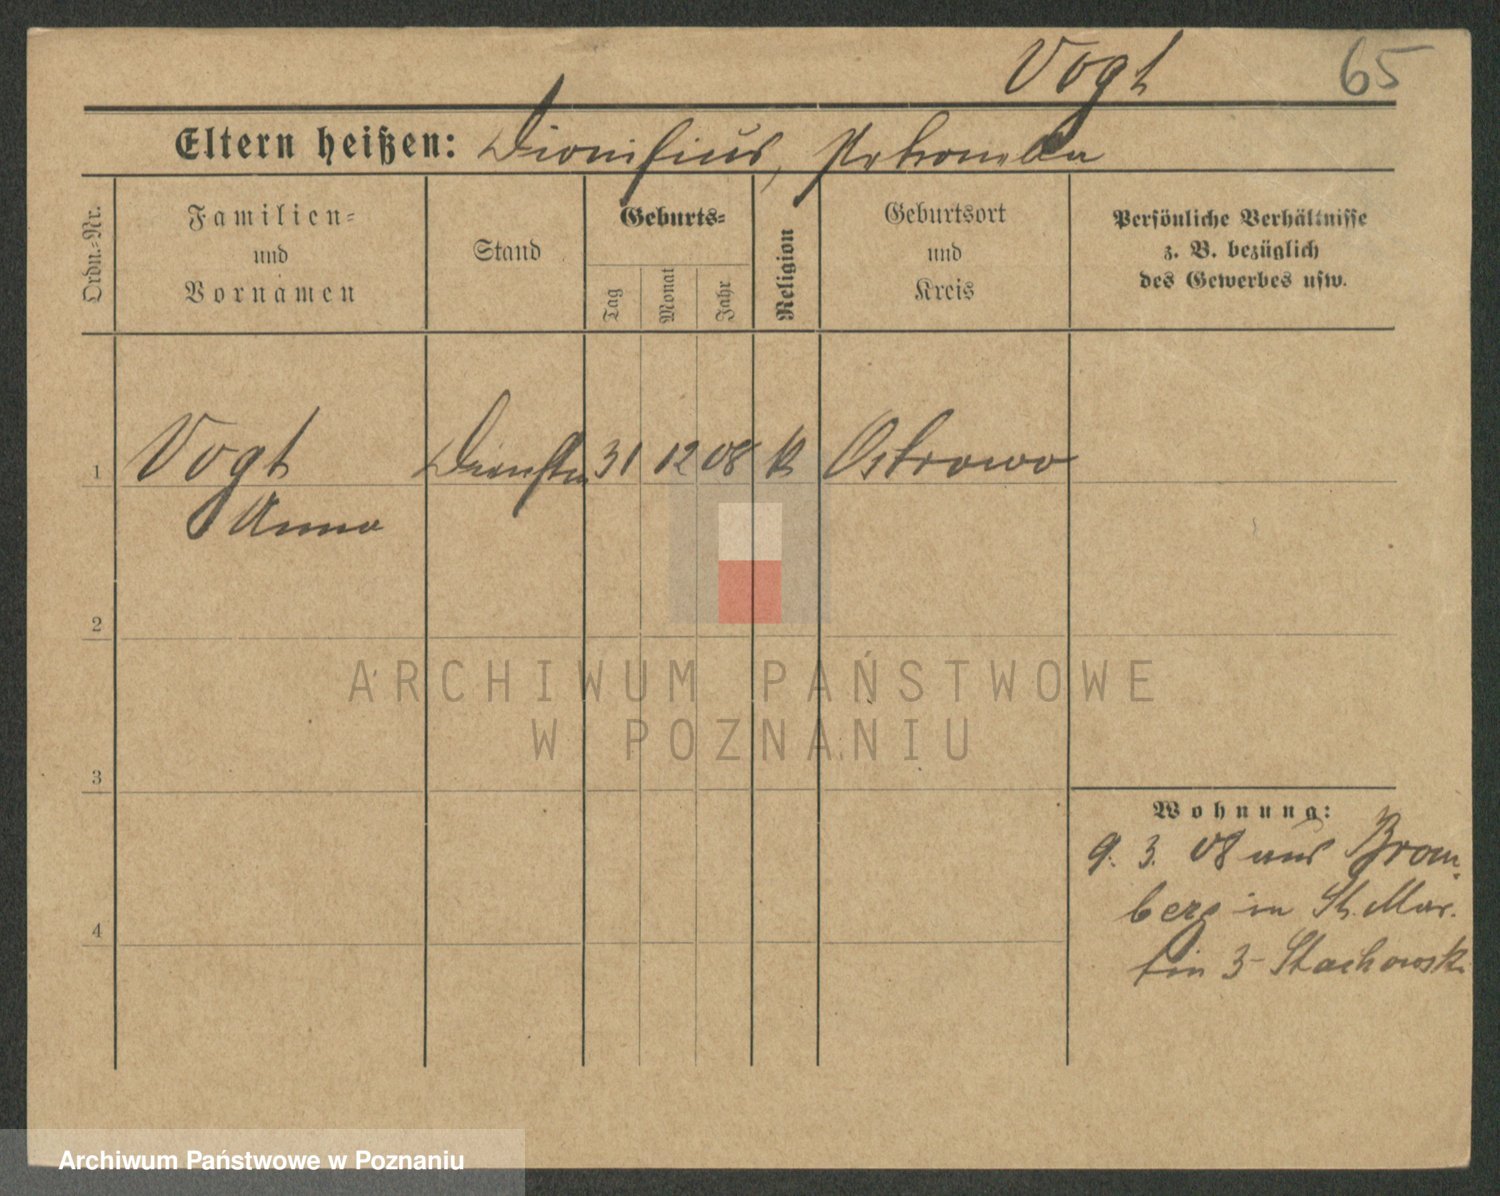 Vogt 65
Eltern heißen: Dionisius, Petronella
Ordn.-Nr.
Familien-
und
Vornamen
Stand
Geburts-
Tag
Monat
Jahr
Religion
Geburtsort
und
Kreis
Persönliche Verhältnisse
z. B. bezüglich
des Gewerbes usw.
1 Vogt 31 12 08 k Ostrowo
Anna
2
ARCHIWUM PAŃSTWOWE
W POZNANIU
3
Wohnung:
9. 3. 08 aus Brom-
berg in St. Mar-
4
tin 3 Stachowski
Archiwum Państwowe w Poznaniu